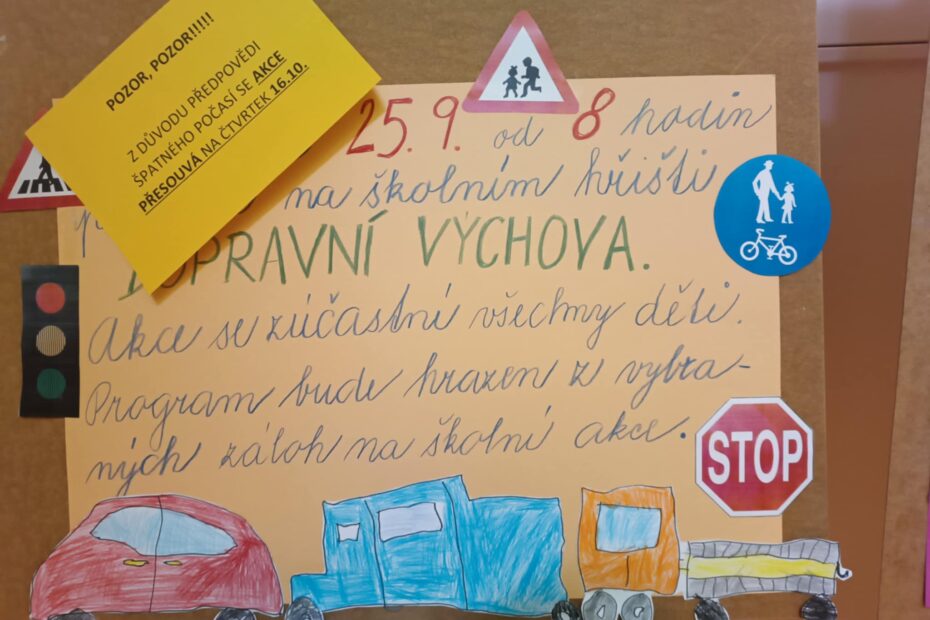 POZOR, POZOR!!!!!
Z DŮVODU PŘEDPOVĚDI
ŠPATNÉHO POČASÍ SE AKCE
PŘESOUVÁ NA ČTVRTEK 16.10.
25. 9. od 8 hodin
na školním hřišti
DOPRAVNÍ VÝCHOVA.
Akce se zúčastní všechny děti.
Program bude hrazen z vybra-
ných záloh na školní akce.
STOP